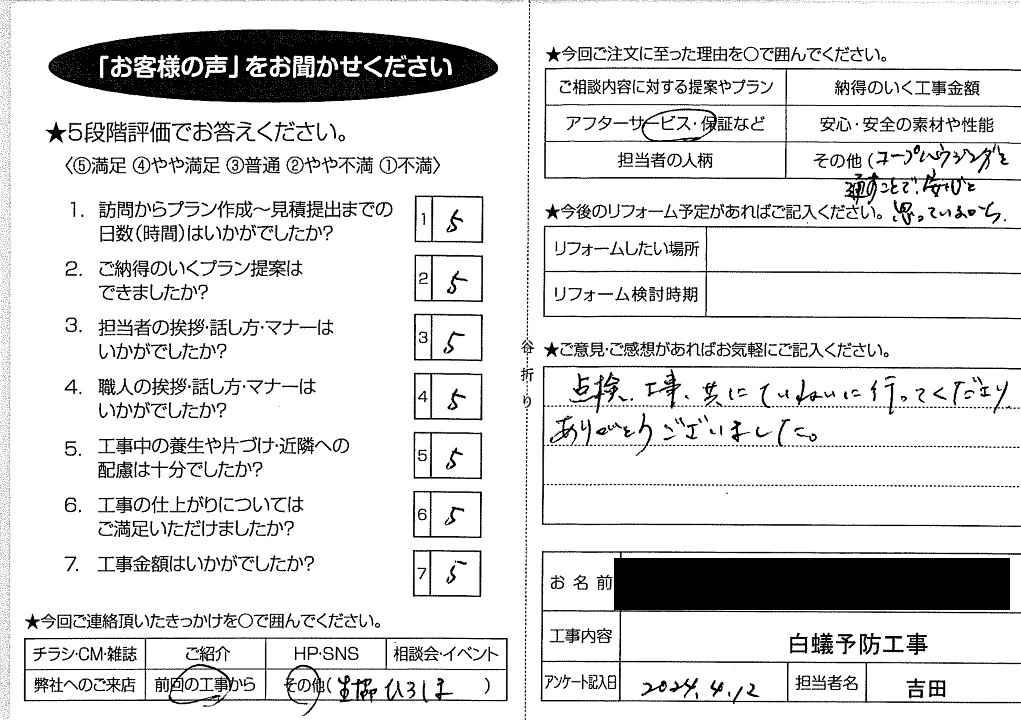 「お客様の声」をお聞かせください
★5段階評価でお答えください。
〈⑤満足 ④やや満足 ③普通 ②やや不満 ①不満〉
1. 訪問からプラン作成～見積提出までの
日数(時間)はいかがでしたか?
1 5
2. ご納得のいくプラン提案は
できましたか?
2 5
3. 担当者の挨拶・話し方・マナーは
いかがでしたか?
3 5
4. 職人の挨拶・話し方・マナーは
いかがでしたか?
4 5
5. 工事中の養生や片づけ・近隣への
配慮は十分でしたか?
5 5
6. 工事の仕上がりについては
ご満足いただけましたか?
6 5
7. 工事金額はいかがでしたか?
7 5
★今回ご連絡頂いたきっかけを○で囲んでください。
チラシ・CM・雑誌 ご紹介 HP・SNS 相談会・イベント
弊社へのご来店 前回の工事から その他(生協ひろしま)
谷折り
★今回ご注文に至った理由を○で囲んでください。
ご相談内容に対する提案やプラン 納得のいく工事金額
アフターサービス・保証など 安心・安全の素材や性能
担当者の人柄 その他(コープハウジングを
通すことで、安心と
思っているから.
★今後のリフォーム予定があればご記入ください。
リフォームしたい場所
リフォーム検討時期
★ご意見・ご感想があればお気軽にご記入ください。
点検、工事、共にていねいに行ってくださり
ありがとうございました。
お名前
工事内容 白蟻予防工事
アンケート記入日 2024.4.12 担当者名 吉田